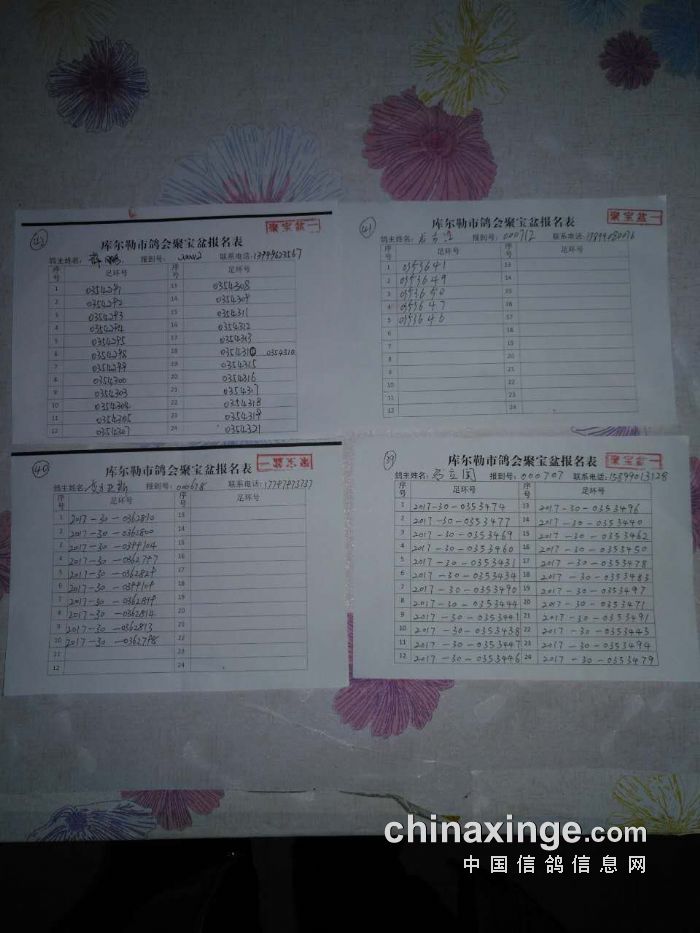 42
聚宝盆一
库尔勒市鸽会聚宝盆报名表
鸽主姓名: 薛鹏 报到号: 联系电话:13999623567
序号 足环号 序号 足环号
1 0354291 13 0354308
2 0354292 14 0354309
3 0354293 15 0354311
4 0354294 16 0354312
5 0354295 17 0354313
6 0354298 18 0354310
7 0354299 19 0354315
8 0354300 20 0354316
9 0354303 21 0354317
10 0354304 22 0354318
11 0354305 23 0354319
12 0354307 24 0354321
41
聚宝盆一
库尔勒市鸽会聚宝盆报名表
鸽主姓名: 报到号: 000712 联系电话:
序号 足环号 序号 足环号
1 0353641 13
2 0353649 14
3 0353650 15
4 0353647 16
5 0353646 17
6 18
7 19
8 20
9 21
10 22
11 23
12 24
40
聚宝盆一
库尔勒市鸽会聚宝盆报名表
鸽主姓名: 报到号: 000678 联系电话:17797973737
序号 足环号 序号 足环号
1 2017-30-0362810 13
2 2017-30-0362800 14
3 2017-30-0399104 15
4 2017-30-0362797 16
5 2017-30-0362829 17
6 2017-30-0399109 18
7 2017-30-0362819 19
8 2017-30-0362814 20
9 2017-30-0362813 21
10 2017-30-0362798 22
11 23
12 24
39
聚宝盆一
库尔勒市鸽会聚宝盆报名表
鸽主姓名: 马立国 报到号: 000707 联系电话:15899013128
序号 足环号 序号 足环号
1 2017-30-0353474 13 2017-30-0353496
2 2017-30-0353477 14 2017-30-0353440
3 2017-30-0353469 15 2017-30-0353462
4 2017-30-0353460 16 2017-30-0353450
5 2017-30-0353431 17 2017-30-0353478
6 2017-30-0353434 18 2017-30-0353483
7 2017-30-0353490 19 2017-30-0353497
8 2017-30-0353444 20 2017-30-0353471
9 2017-30-0353441 21 2017-30-0353491
10 2017-30-0353438 22 2017-30-0353443
11 2017-30-0353447 23 2017-30-0353494
12 2017-30-0353446 24 2017-30-0353479
chinaxinge.com
中国信鸽信息网